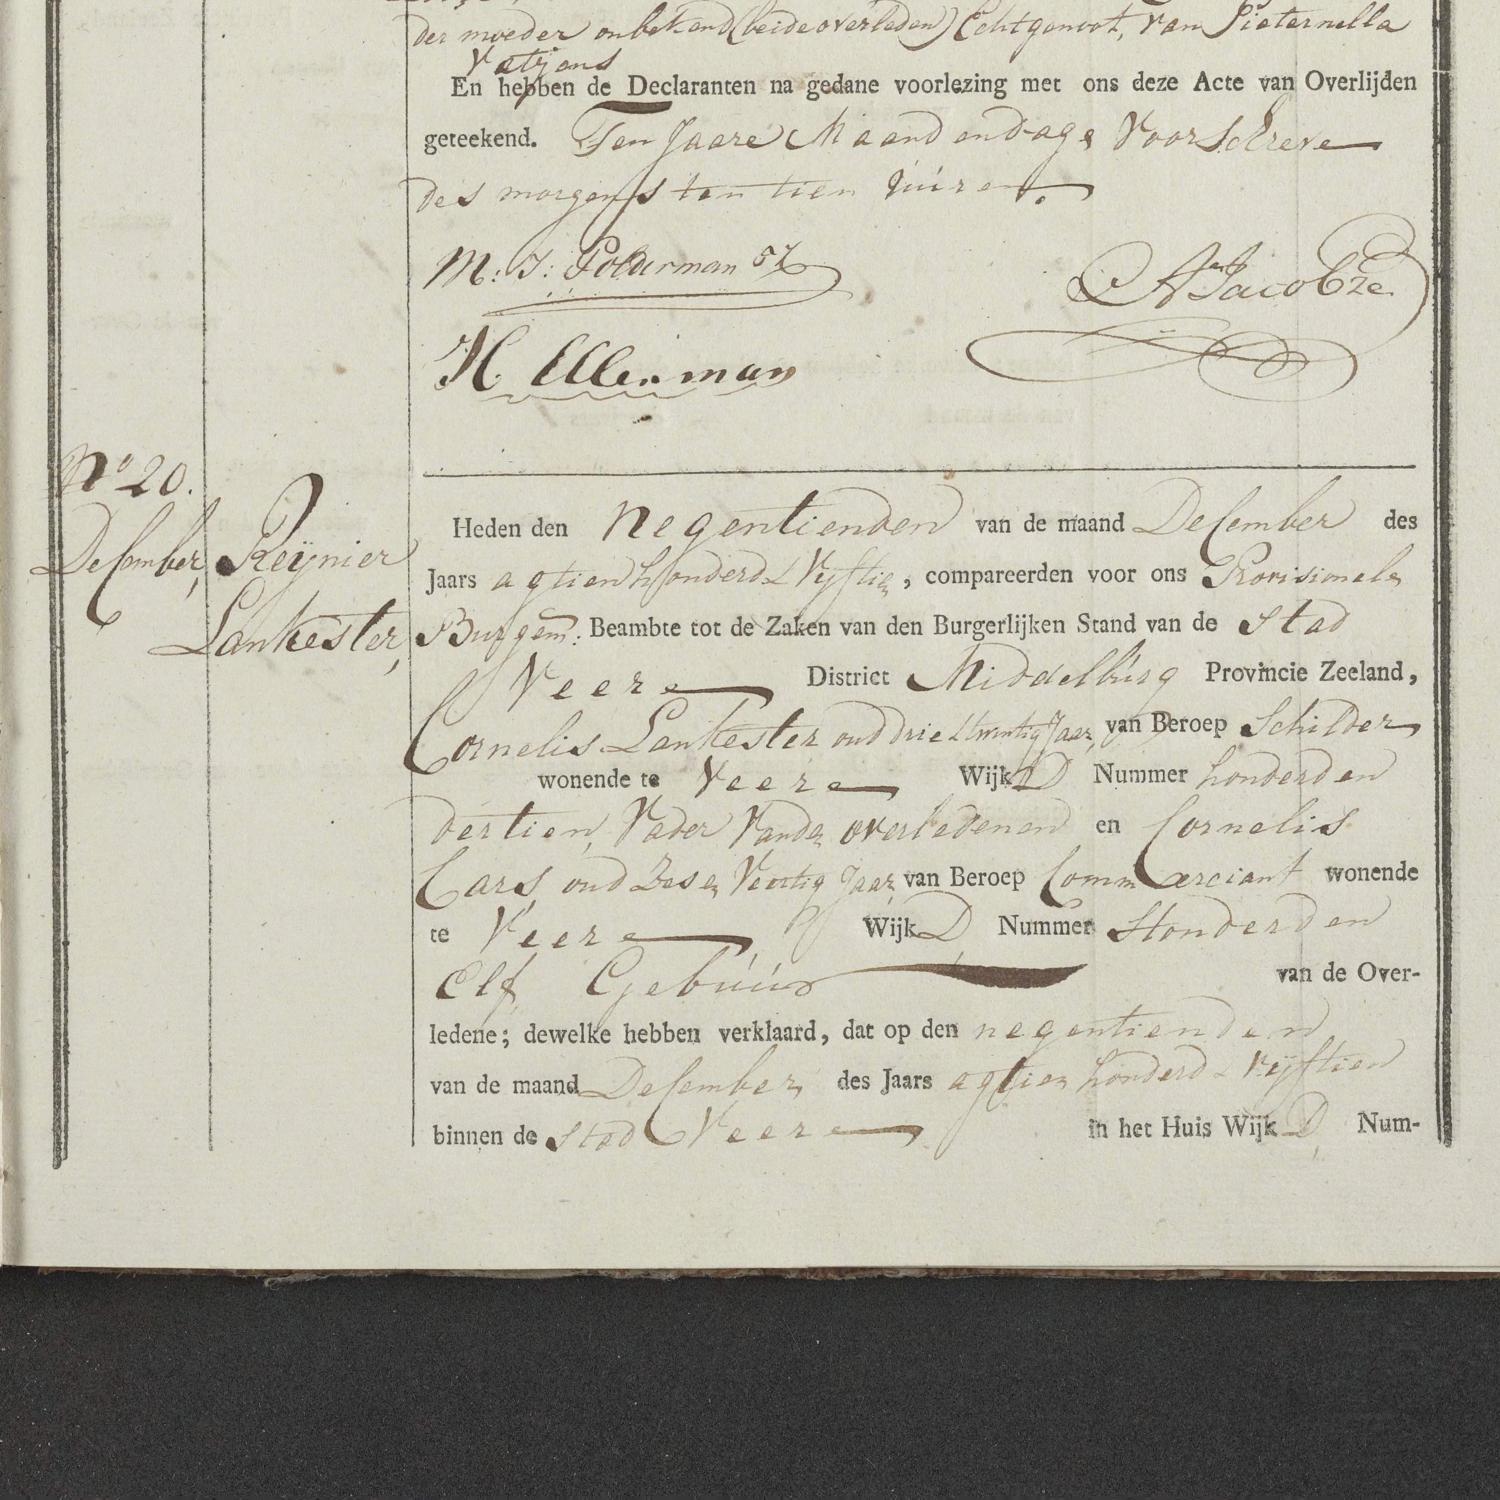 der moeder onbekend (beide overleden) Echtgenoot, van Pieternella
En hebben de Declaranten na gedane voorlezing met ons deze Acte van Overlijden
geteekend. Ten Jaare Maand en dage Voorschreve
des morgens ten tien uuren.
M: J: Polderman
A Jacobze
H. Ellerman
No 20.
December, Reÿnier
Lankester,
Heden den negentienden van de maand December des
Jaars agtienhonderd & Vyftien, compareerden voor ons Provisionele
Burgem: Beambte tot de Zaken van den Burgerlijken Stand van de Stad
Veere District Middelburg Provincie Zeeland,
Cornelis Lankester oud drie Jaar, van Beroep Schilder
wonende te Veere Wijk D Nummer honderd en
dertien, Vader Vanden overledenen en Cornelis
Cars, oud Zes en Veertig Jaar van Beroep Commerciant wonende
te Veere Wijk D Nummer Honderd en
Elf Gebuur van de Over-
ledene; dewelke hebben verklaard, dat op den negentienden
van de maand December des Jaars agtien honderd & vÿftien
binnen de Stad Veere in het Huis Wijk D Num-